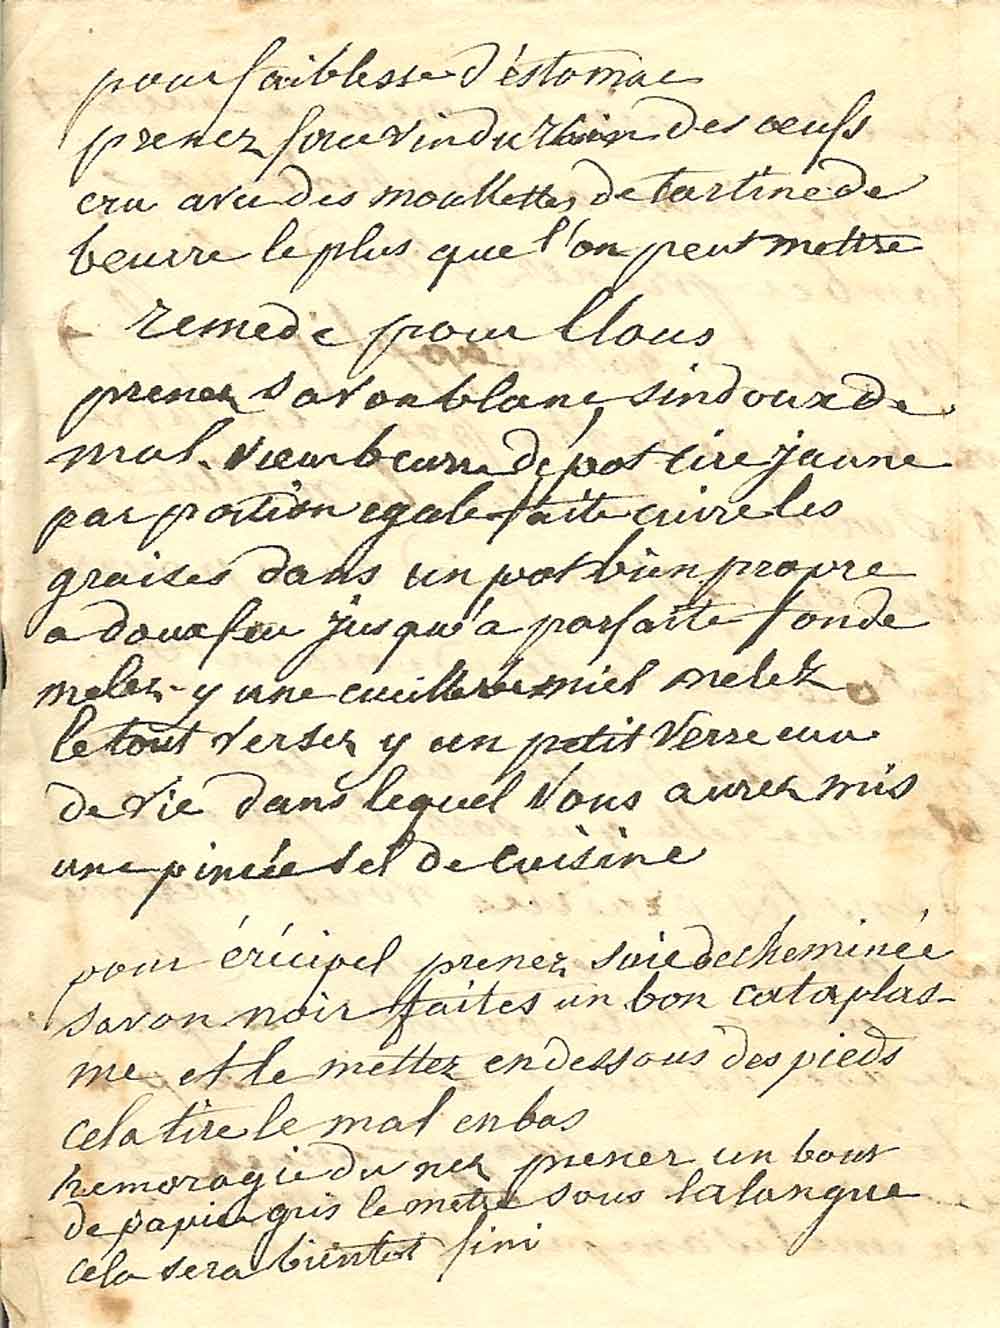 pour faiblesse d'éstomac
prenez vin du Rhin des oeufs
cru avec des moullettes de tartine de
beurre le plus que l'on peut mettre
remede pour Clous
prenez savon blanc, sindoux de
mal. vieux beurre de pot cire jaune
par portion egale faite cuire les
graises dans un pot bien propre
a doux feu jusqu'a parfaite fonde
melez-y une cueillere miel melez
le tout versez y un petit verre eau
de vie dans lequel vous aurez mis
une pincée sel de cuisine
pour érécipel prenez suie de cheminée
savon noir faites un bon cataplas-
me et le mettez en dessous des pieds
cela tire le mal en bas
hemoragie du nez prener un bout
de papier gris le metre sous la langue
cela sera bientot fini